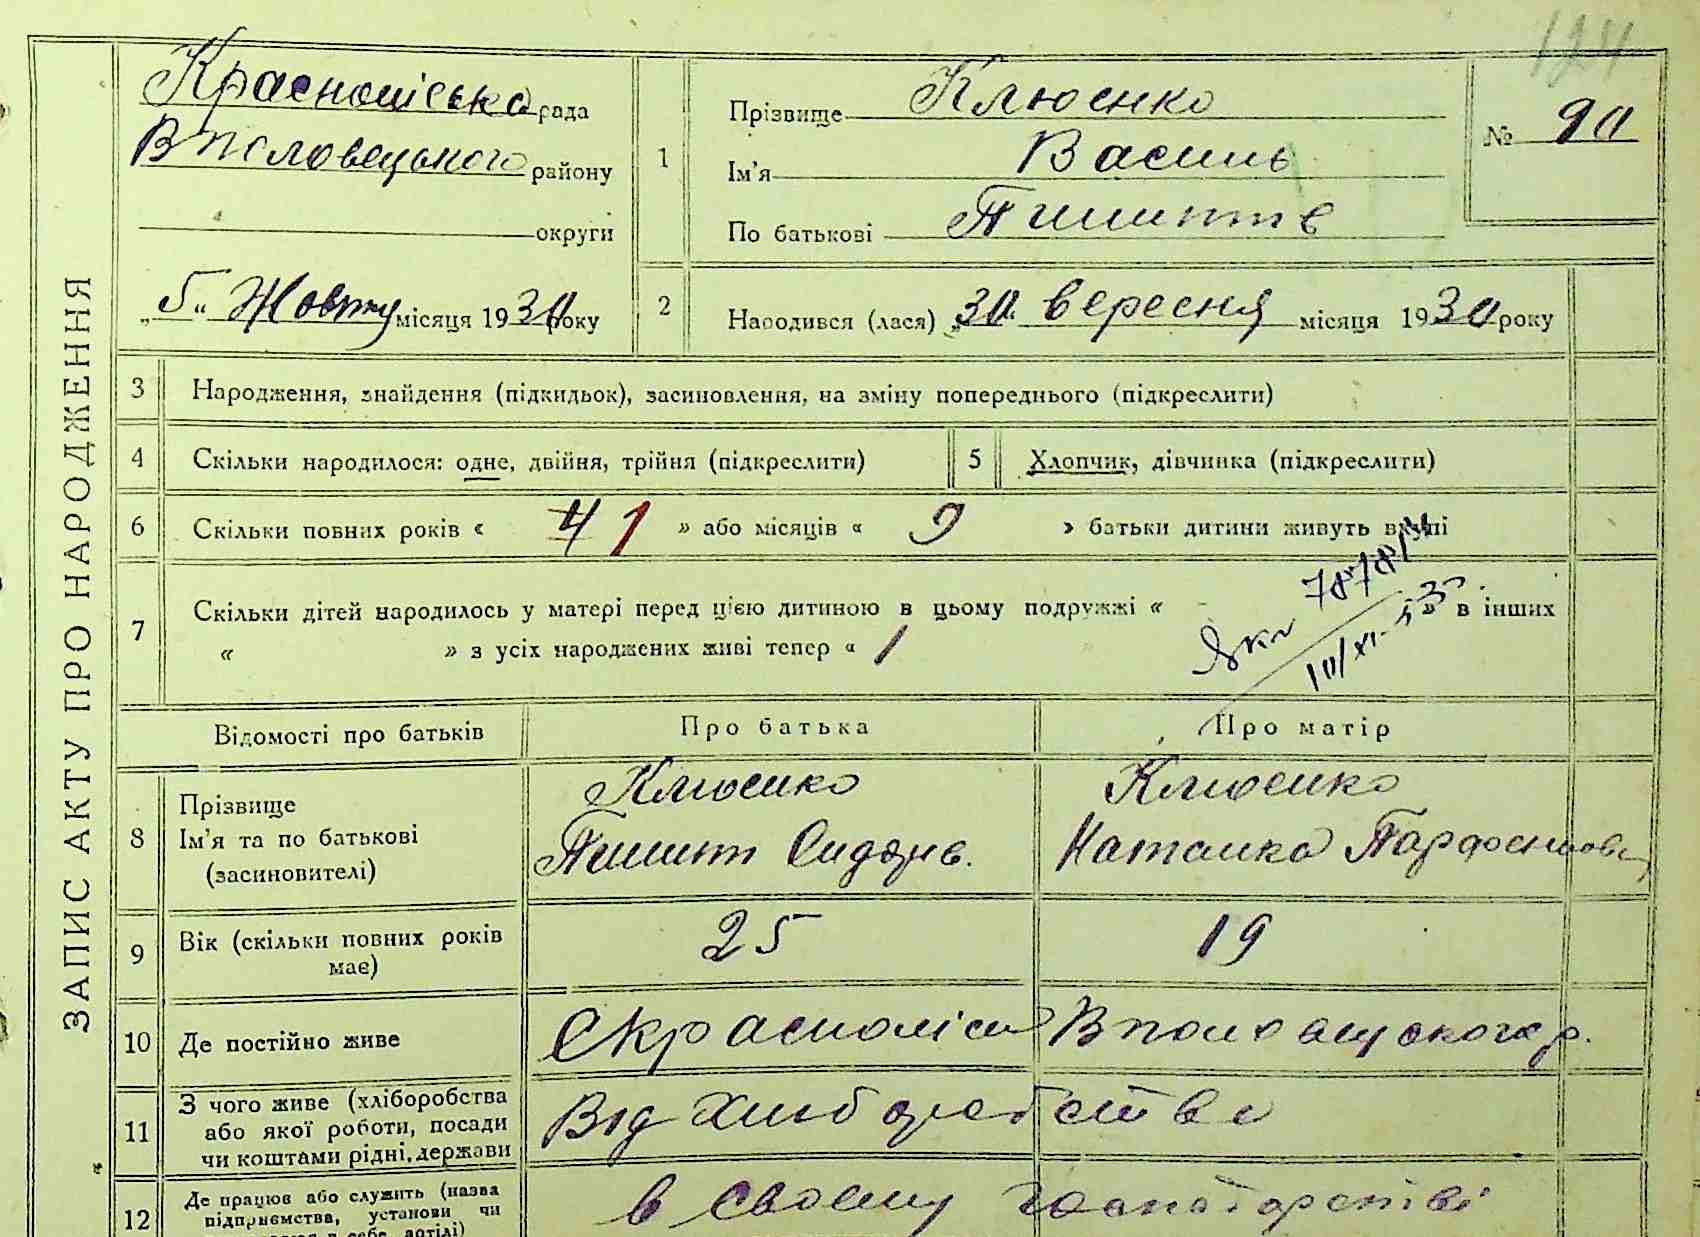 124
ЗАПИС АКТУ ПРО НАРОДЖЕННЯ
Красноліська рада
В Половецького району
округи
„5“ Жовтня місяця 1930 року
1
Прізвище Клюенко
Ім’я Василь
По батькові
№ 90
2
Народився (лася) „30“ вересня місяця 1930 року
3 Народження, знайдення (підкидьок), засиновлення, на зміну попереднього (підкреслити)
4 Скільки народилося: одне, двійня, трійня (підкреслити)
5 Хлопчик, дівчинка (підкреслити)
6 Скільки повних років « 1 » або місяців « 9 » батьки дитини живуть вкупі
7 Скільки дітей народилось у матері перед цією дитиною в цьому подружжі « » в інших
« » з усіх народжених живі тепер « 1
Відомості про батьків Про батька Про матір
8
Прізвище
Ім’я та по батькові
(засиновителі)
Клюенко
Сидорів.
Клюенко
Наталка Парфенівна
9 Вік (скільки повних років має)
25
19
10 Де постійно живе
С Красноліси В Половецкого р.
11 З чого живе (хліборобства
або якої роботи, посади
чи коштами рідні, держави
Від хліборобства
12 Де працює або служить (назва
підприємства, установи чи
в себе, артілі)
в своєму господарстві